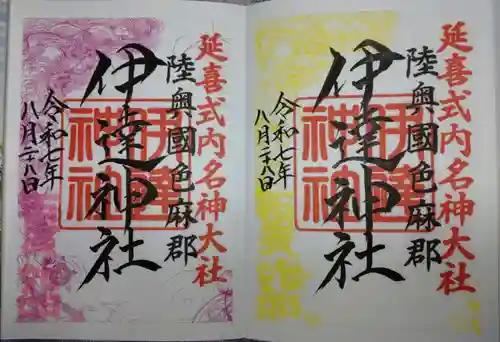 延喜式内名神大社
陸奥國色麻郡
伊達神社
令和七年
八月二十八日
延喜式内名神大社
陸奥國色麻郡
伊達神社
令和七年
八月二十八日